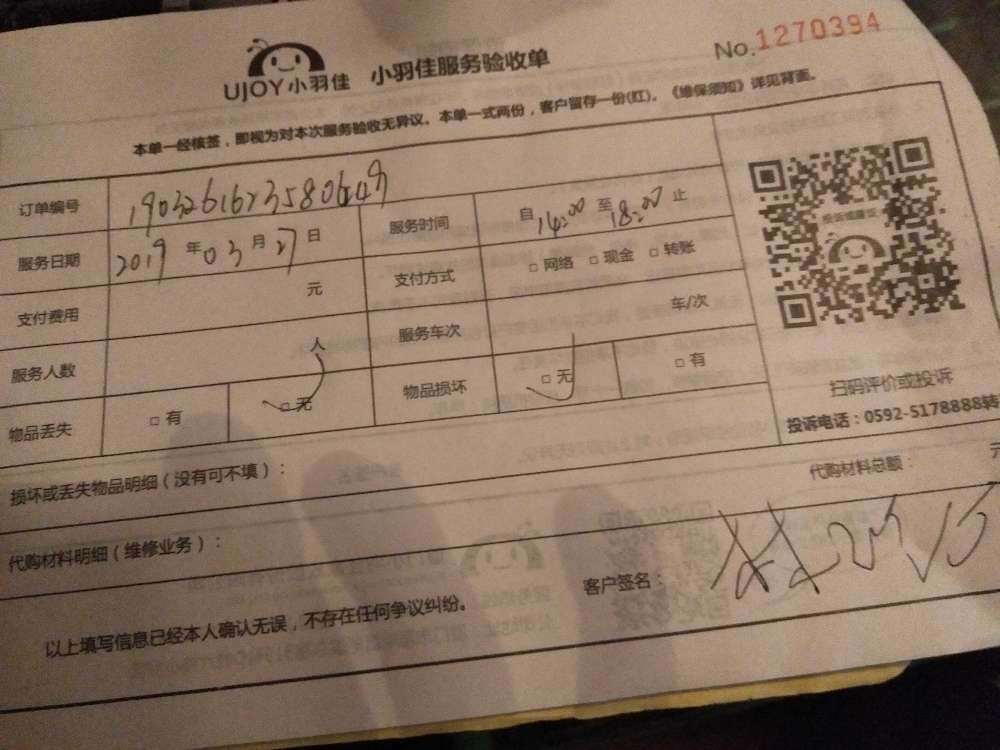 UJOY小羽佳 小羽佳服务验收单 No.1270394
本单一经核签，即视为对本次服务验收无异议。本单一式两份，客户留存一份(红)。《维保须知》详见背面。
订单编号
服务日期 2019 年 03 月 27 日 服务时间 自 14:00 至 18:00 止
支付费用 元 支付方式 □ 网络 □ 现金 □ 转账
服务人数 人 服务车次 车/次
物品丢失 □ 有 □ 无 物品损坏 □ 无 □ 有
扫码评价或投诉
投诉电话：0592-5178888转
损坏或丢失物品明细（没有可不填）：
代购材料总额： 元
代购材料明细（维修业务）：
客户签名：
以上填写信息已经本人确认无误，不存在任何争议纠纷。